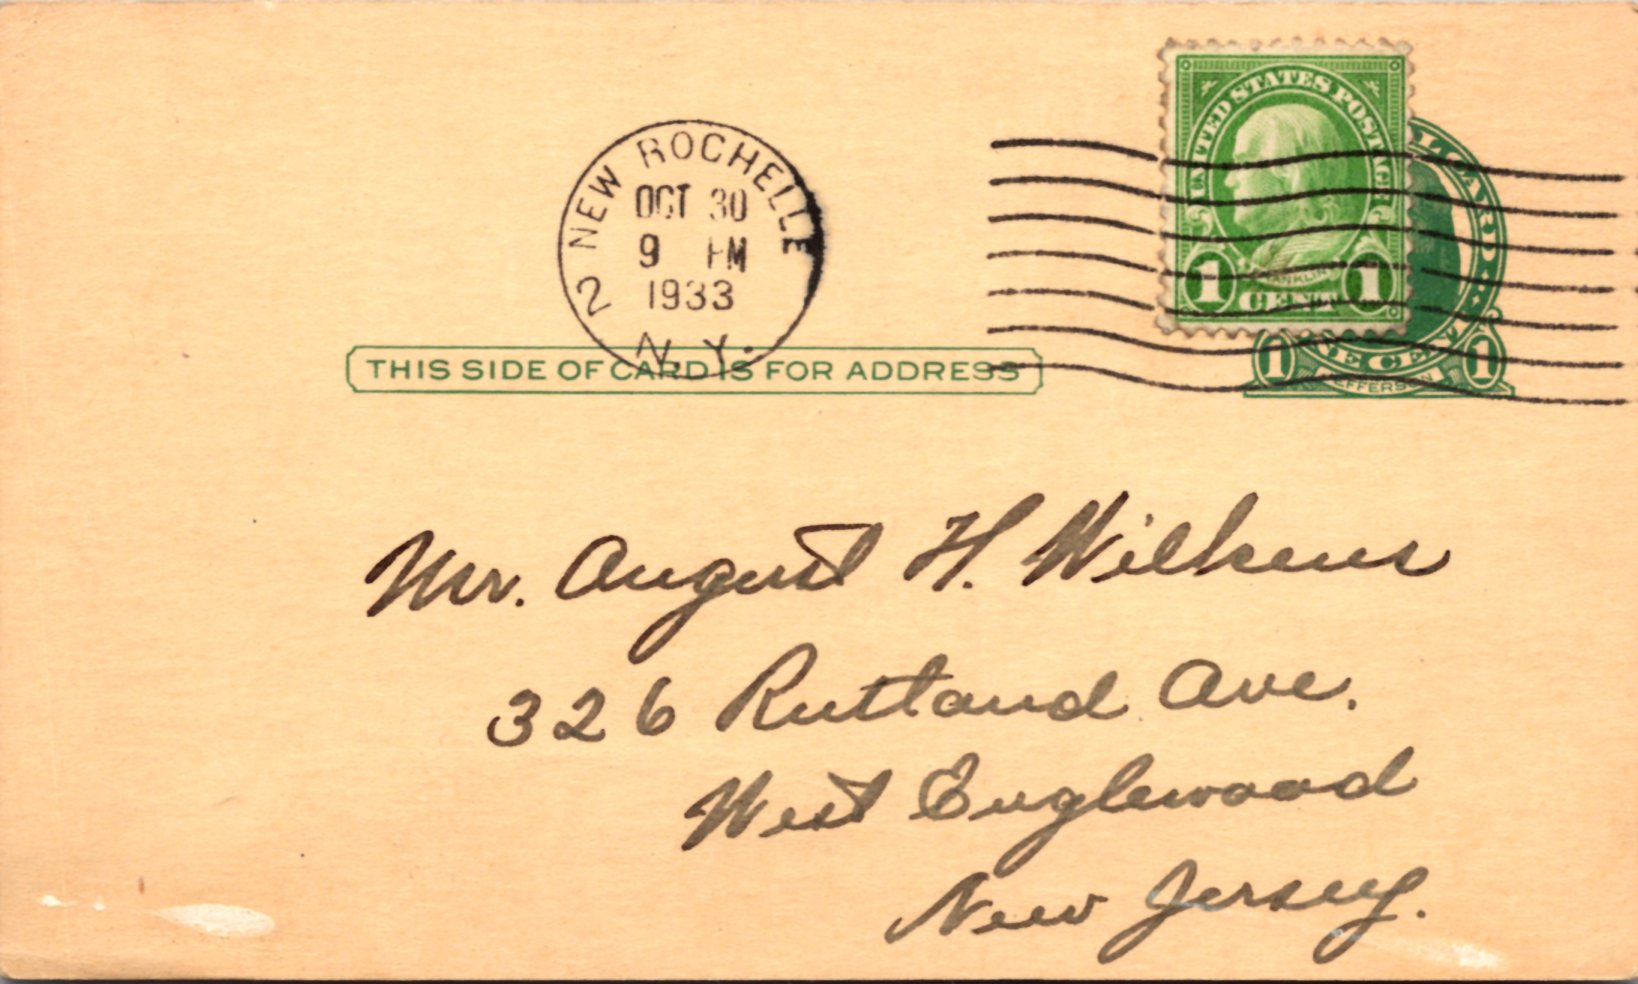 NEW ROCHELLE
OCT 30
9 PM
1933
2
N.Y.
UNITED STATES POSTAGE
FRANKLIN
1 CENT 1
THIS SIDE OF CARD IS FOR ADDRESS
1 1
JEFFERSON
Mr. August H. Wilkens
326 Rutland Ave.
West Englewood
New Jersey.